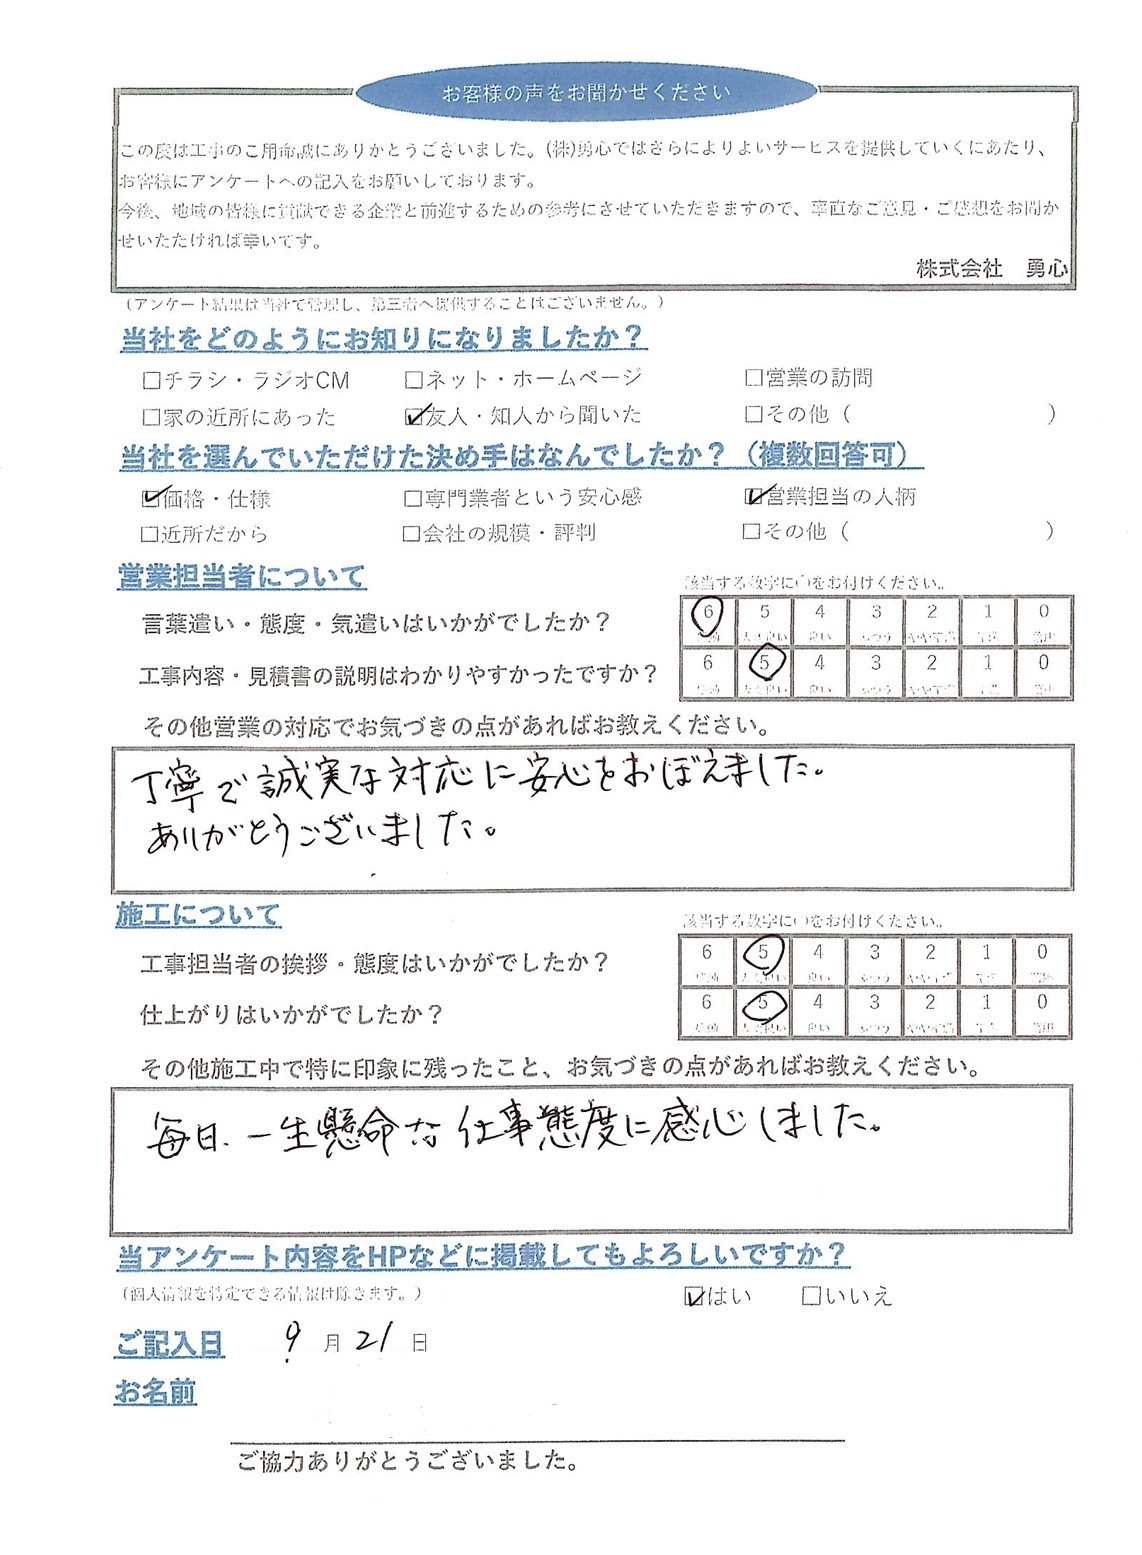 お客様の声をお聞かせください
この度は工事のご用命誠にありがとうございました。(株)勇心ではさらによりよいサービスを提供していくにあたり、
お客様にアンケートへの記入をお願いしております。
今後、地域の皆様に貢献できる企業と前進するための参考にさせていただきますので、率直なご意見・ご感想をお聞か
せいただければ幸いです。
株式会社 勇心
(アンケート結果は当社で管理し、第三者へ提供することはございません。)
当社をどのようにお知りになりましたか?
□チラシ・ラジオCM □ネット・ホームページ □営業の訪問
□家の近所にあった ☑友人・知人から聞いた □その他( )
当社を選んでいただけた決め手はなんでしたか?(複数回答可)
☑価格・仕様 □専門業者という安心感 ☑営業担当の人柄
□近所だから □会社の規模・評判 □その他( )
営業担当者について
該当する数字に〇をお付けください。
言葉遣い・態度・気遣いはいかがでしたか? 6 5 4 3 2 1 0
大変良い 良い ふつう
工事内容・見積書の説明はわかりやすかったですか? 6 5 4 3 2 1 0
大変良い 良い ふつう
その他営業の対応でお気づきの点があればお教えください。
丁寧で誠実な対応に安心をおぼえました。
ありがとうございました。
施工について
該当する数字に〇をお付けください。
工事担当者の挨拶・態度はいかがでしたか? 6 5 4 3 2 1 0
大変良い 良い ふつう
仕上がりはいかがでしたか? 6 5 4 3 2 1 0
大変良い 良い ふつう
その他施工中で特に印象に残ったこと、お気づきの点があればお教えください。
毎日、一生懸命な仕事態度に感心しました。
当アンケート内容をHPなどに掲載してもよろしいですか?
(個人情報を特定できる情報は除きます。) ☑はい □いいえ
ご記入日 9月21日
お名前
ご協力ありがとうございました。